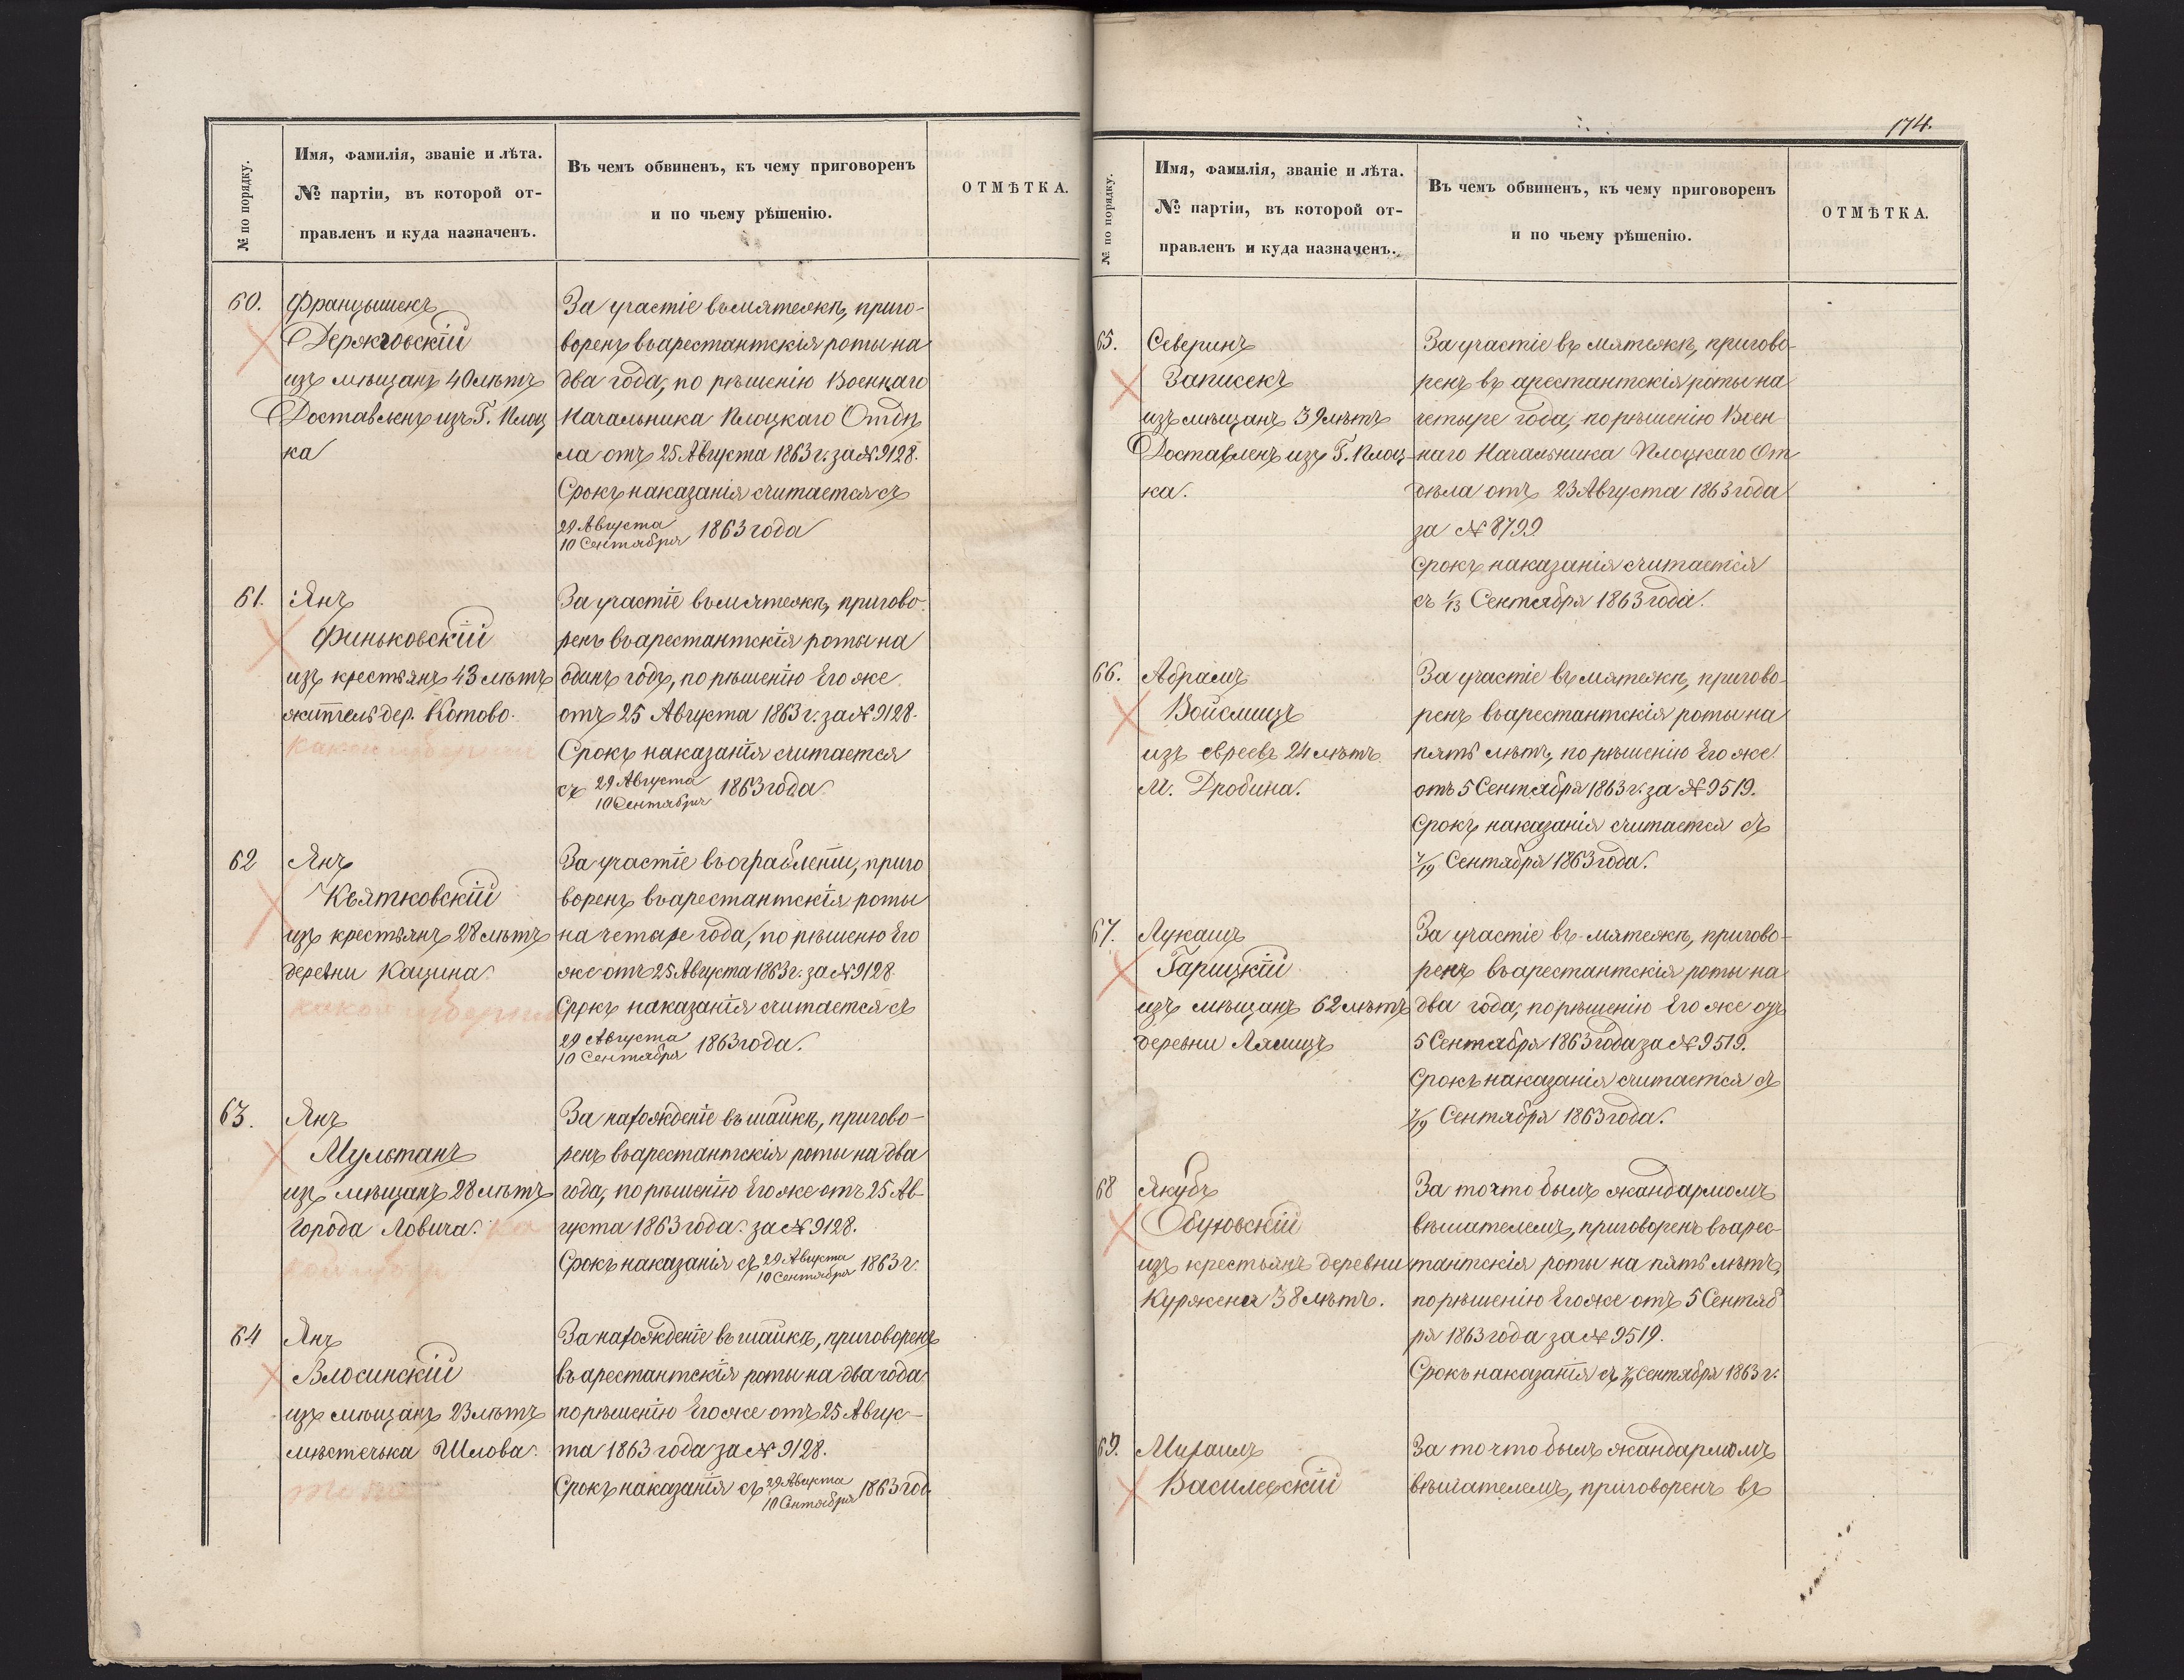 № по порядку.
Имя, фамилія, званіе и лѣта.
№ партіи, въ которой от-
правленъ и куда назначенъ.
Въ чемъ обвиненъ, къ чему приговоренъ
и по чьему рѣшенію.
ОТМѢТКА.
60.
Францышекъ
Держговскій
изъ мѣщанъ 40 лѣтъ
Доставленъ изъ Г. Плоц
ка
За участіе въ мятежѣ, приго-
воренъ въ арестантскія роты на
два года, по рѣшенію Военнаго
Начальника Плоцкаго Отдѣ
ла отъ 25 Августа 1863 г. за № 9128.
Срокъ наказанія считается съ
29 Августа
10 Сентября 1863 года
61.
Янъ
Финьковскій
изъ крестьянъ 43 лѣтъ
житель дер. Котово.
какой губерніи
За участіе въ мятежѣ, пригово-
ренъ въ арестантскія роты на
одинъ годъ, по рѣшенію Его же
отъ 25 Августа 1863 г. за № 9128.
Срокъ наказанія считается
съ 29 Августа
10 Сентября 1863 года
62
Янъ
Квятковскій
изъ крестьянъ 28 лѣтъ
деревни Кацина
какой губерніи
За участіе въ ограбленіи, приго
воренъ въ арестантскія роты
на четыре года, по рѣшеню Его
же отъ 25 Августа 1863 г. за № 9128.
Срокъ наказанія считается съ
29 Августа
10 Сентября 1863 года.
63.
Янъ
Мультанъ
изъ мѣщанъ 28 лѣтъ
города Ловича. ка
кой губер
За нахожденіе въ шайкѣ, пригово-
ренъ въ арестантскія роты на два
года, по рѣшенію Его же отъ 25 Ав-
густа 1863 года. за № 9128.
Срокъ наказанія съ 29 Августа
10 Сентября 1863 г.
64
Янъ
Влосинскій
изъ мѣщанъ 23 лѣтъ
мѣстечька Шлова.
тоже
За нахожденіе въ шайкѣ, приговоренъ
въ арестантскія роты на два года
по рѣшенію Его же отъ 25 Авгус-
та 1863 года за № 9128.
Срокъ наказанія съ 29 Августа
10 Сентября 1863 год.
174.
№ по порядку.
Имя, фамилія, званіе и лѣта.
№ партіи, въ которой от-
правленъ и куда назначенъ.
Въ чемъ обвиненъ, къ чему приговоренъ
и по чьему рѣшенію.
ОТМѢТКА.
65.
Северинъ
Записекъ
изъ мѣщанъ 39 лѣтъ
Доставленъ изъ Г. Плоц-
ка.
За участіе въ мятежѣ, пригово-
ренъ въ арестантскія роты на
четыре года, по рѣшенію Воен-
наго Начальника Плоцкаго От
дѣла отъ 23 Августа 1863 года
за № 8799
Срокъ наказанія считается
съ 1/13 Сентября 1863 года.
66.
Абрамъ
Войслицъ
изъ евреевъ 24 лѣтъ
М. Дробина.
За участіе въ мятежѣ, пригово-
ренъ въ арестантскія роты на
пять лѣтъ, по рѣшенію Его же
отъ 5 Сентября 1863 г. за № 9519.
Срокъ наказанія считается съ
7/19 Сентября 1863 года.
67.
Лукашъ
Гарицкій
изъ мѣщанъ 62 лѣтъ
деревни Лямицъ
За участіе въ мятежѣ, пригово-
ренъ въ арестантскія роты на
два года, по рѣшенію Его же отъ
5 Сентября 1863 года за № 9519.
Срокъ наказанія считается съ
7/19 Сентября 1863 года.
68
Якубъ
Обуховскій
изъ крестьянъ деревни
Куржена 38 лѣтъ.
За то что былъ жандармомъ
вѣшателемъ, приговоренъ въ арес-
тантскія роты на пять лѣтъ,
по рѣшенію Его же отъ 5 Сентяб
ря 1863 года за № 9519.
Срокъ наказанія съ 7/19 Сентября 1863 г.
69.
Михаилъ
Василевскій
За то что былъ жандармомъ
вѣшателемъ, приговоренъ въ